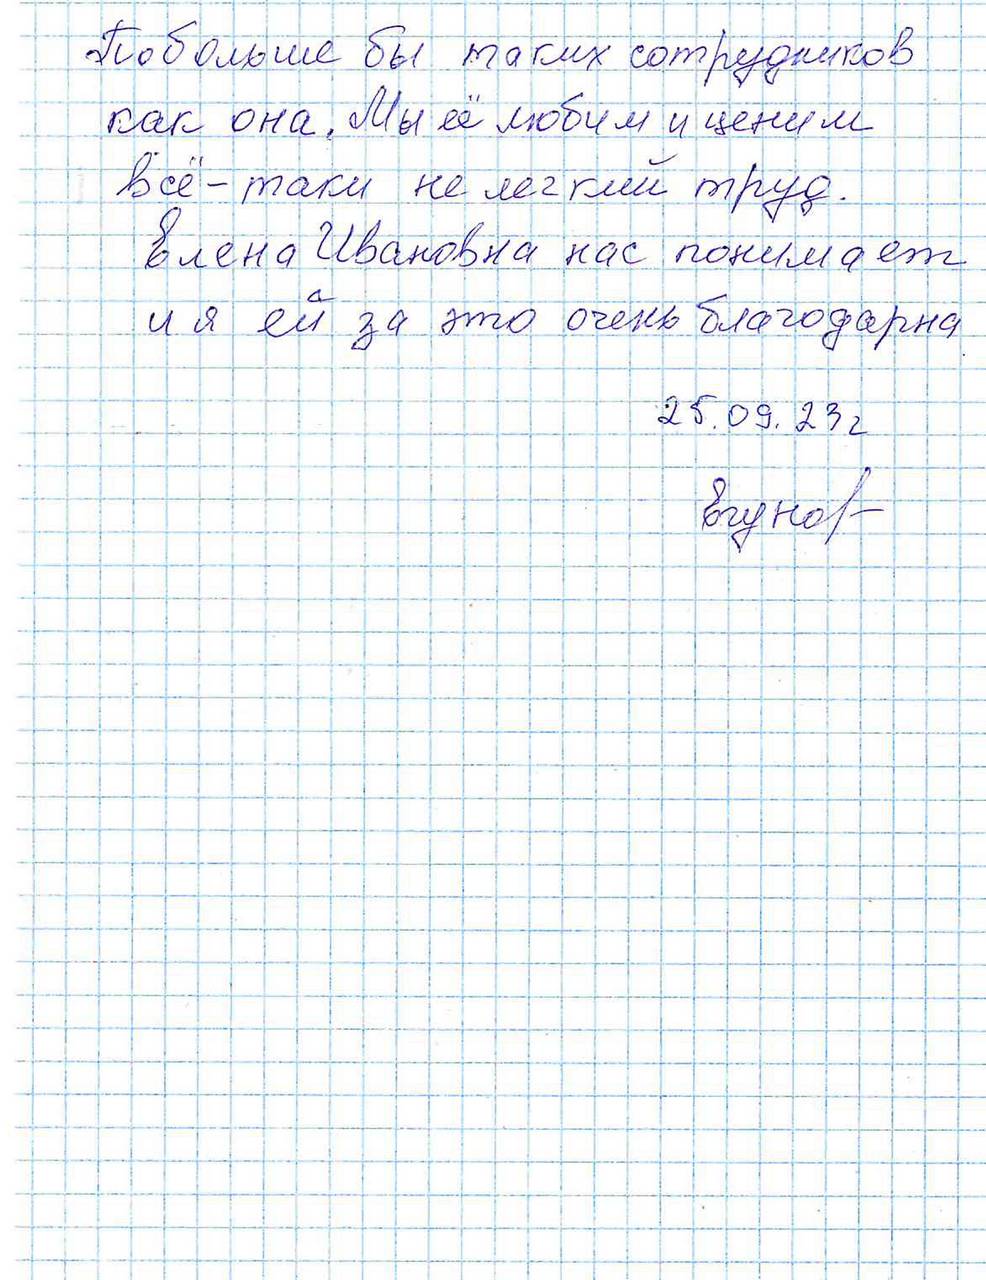 Побольше бы таких сотрудников
как она. Мы её любим и ценим
всё-таки не легкий труд.
Елена Ивановна нас понимает
и я ей за это очень благодарна
25.09.23г